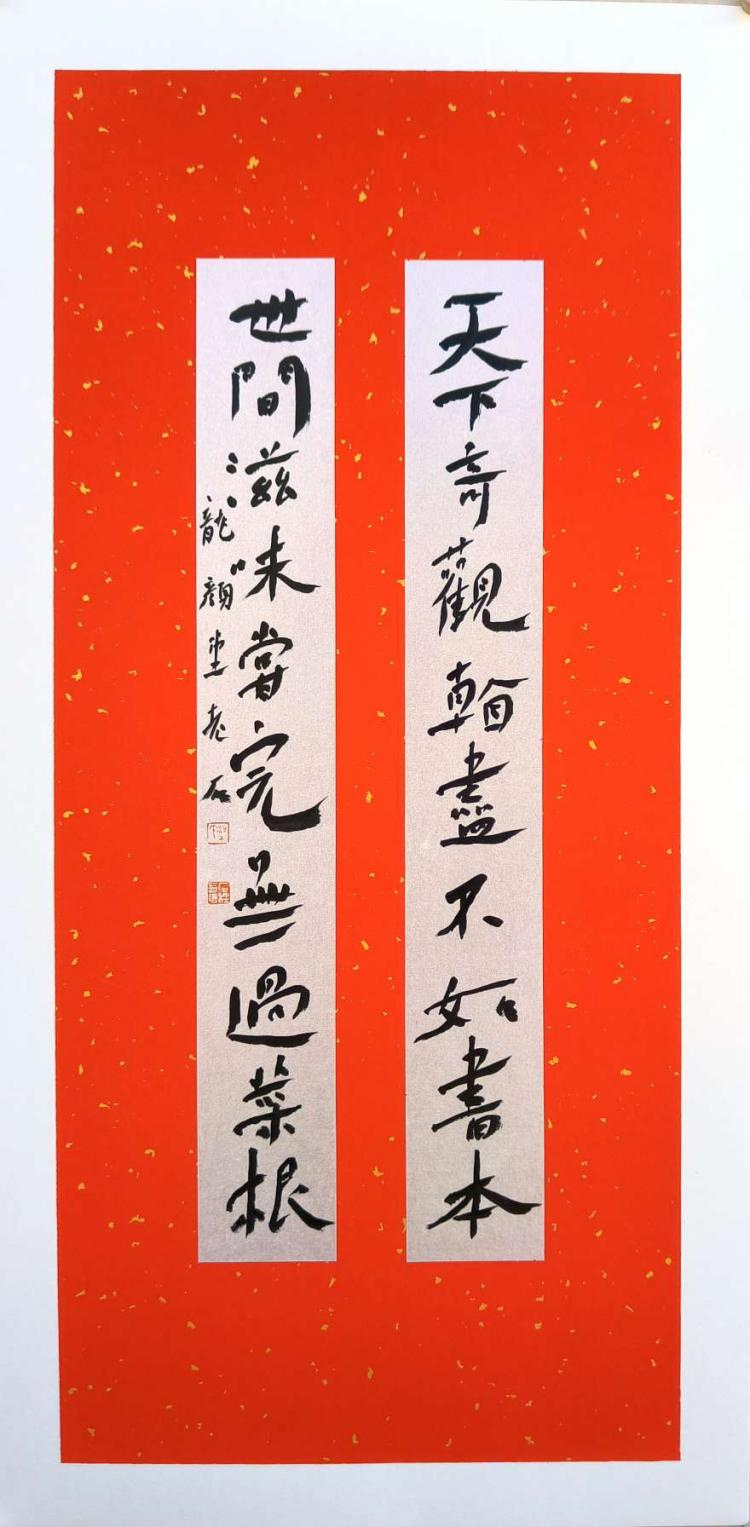 天下奇觀翰盡不如書本
世間滋味嘗完無過菜根
龍顏堂老石